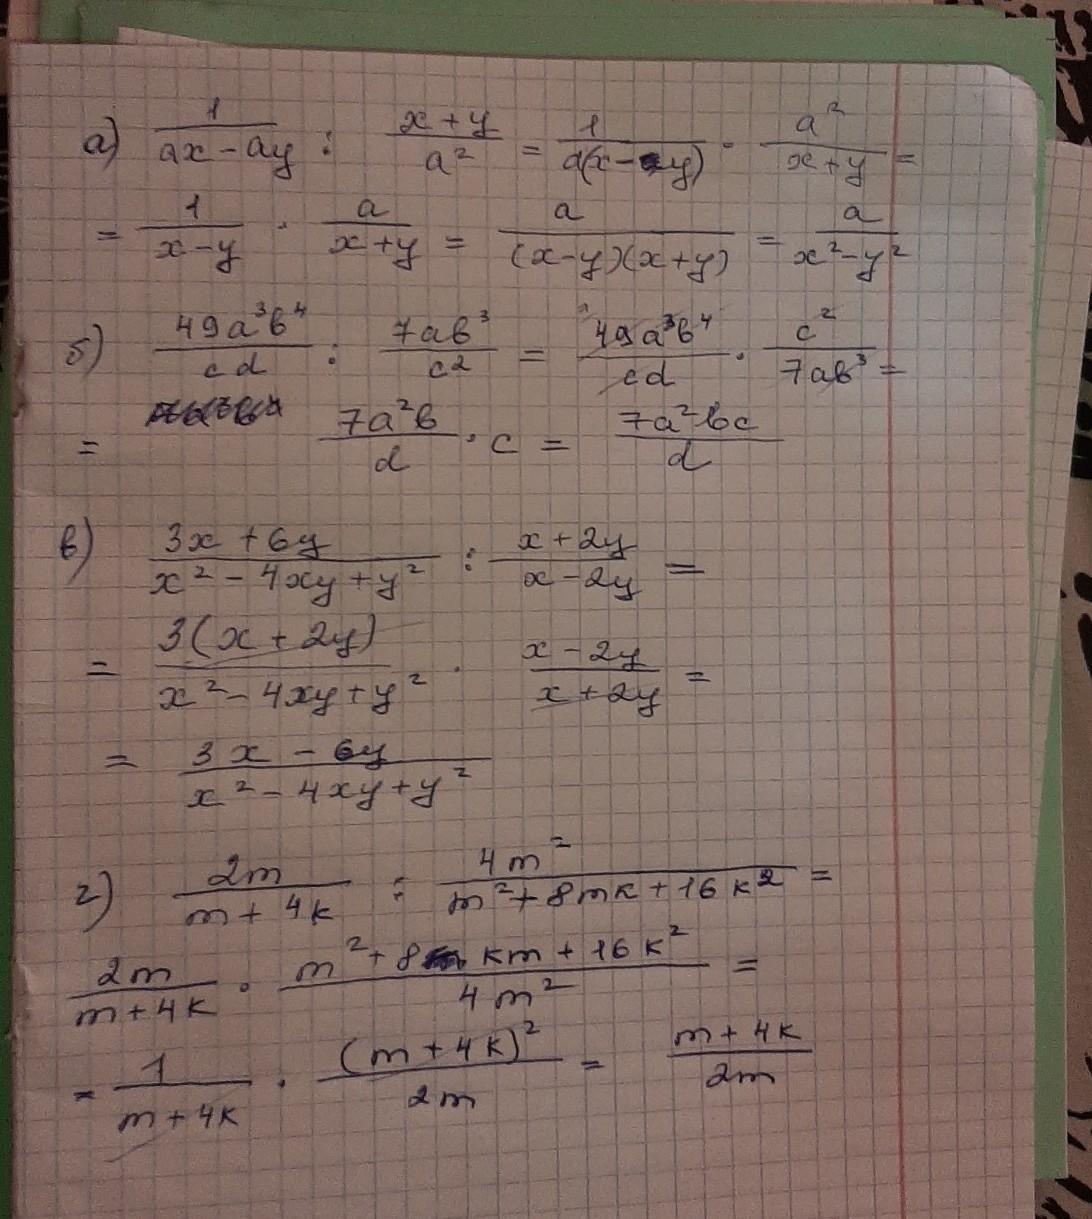 а) 1/(ax - ay) : (x + y)/a² = 1/(a(x - y)) · a²/(x + y) =
= 1/(x - y) · a/(x + y) = a/((x - y)(x + y)) = a/(x² - y²)
б) 49a³b⁴/(cd) : 7ab³/c² = 49a³b⁴/(cd) · c²/(7ab³) =
= 7a²b/d · c = 7a²bc/d
в) (3x + 6y)/(x² - 4xy + y²) : (x + 2y)/(x - 2y) =
= 3(x + 2y)/(x² - 4xy + y²) · (x - 2y)/(x + 2y) =
= (3x - 6y)/(x² - 4xy + y²)
г) 2m/(m + 4k) : 4m²/(m² + 8mk + 16k²) =
2m/(m + 4k) · (m² + 8km + 16k²)/(4m²) =
= 1/(m + 4k) · (m + 4k)²/(2m) = (m + 4k)/(2m)